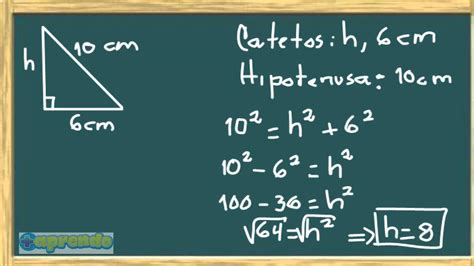 h
10 cm
6cm
Catetos: h, 6cm
Hipotenusa: 10cm
10² = h² + 6²
10² - 6² = h²
100 - 36 = h²
√64 = √h² ⇒ h=8
+aprendo